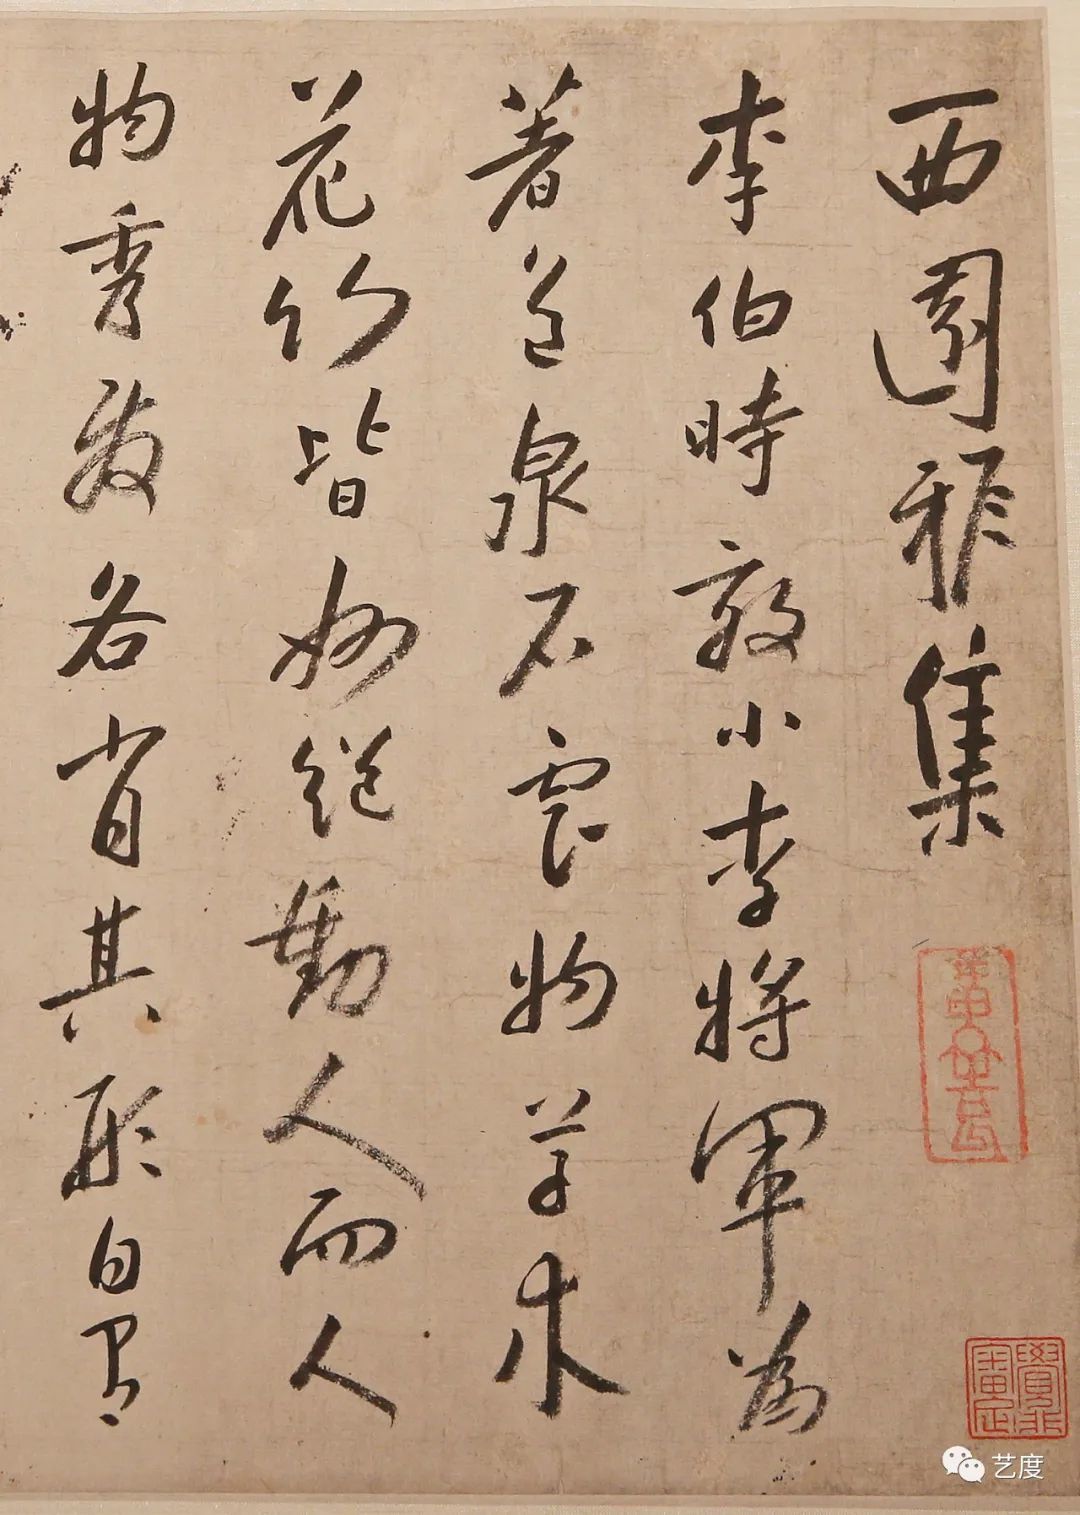 西園雅集
李伯時效小李將軍為
著色泉石雲物草木
花竹皆妙絕動人而人
物秀發各肖其形自有
艺度